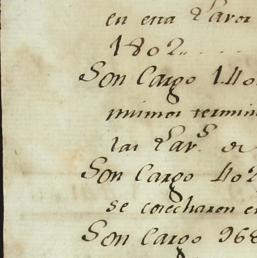 en esta Lavor
1802....
Son Cargo 140
mismos termin
las Lavs. de
Son Cargo 402
se cosecharon e
Son Cargo 968